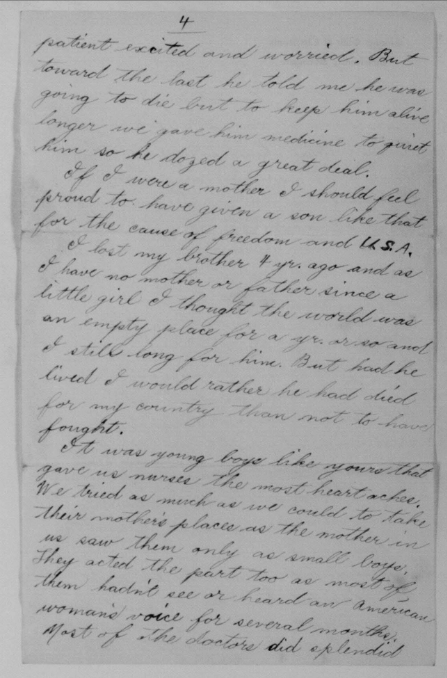 4
patient excited and worried. But
toward the last he told me he was
going to die but to keep him alive
longer we gave him medicine to quiet
him so he dozed a great deal.
If I were a mother I should feel
proud to have given a son like that
for the cause of freedom and U.S.A.
I lost my brother 4 yr. ago and as
I have no mother or father since a
little girl I thought the world was
an empty place for a yr. or so and
I still long for him. But had he
lived I would rather he had died
for my country than not to have
fought.
It was young boys like yours that
gave us nurses the most heart aches.
We tried as much as we could to take
their mother's places as the mother in
us saw them only as small boys.
They acted the part too as most of
them hadn't see or heard an American
woman's voice for several months.
Most of the doctors did splendid